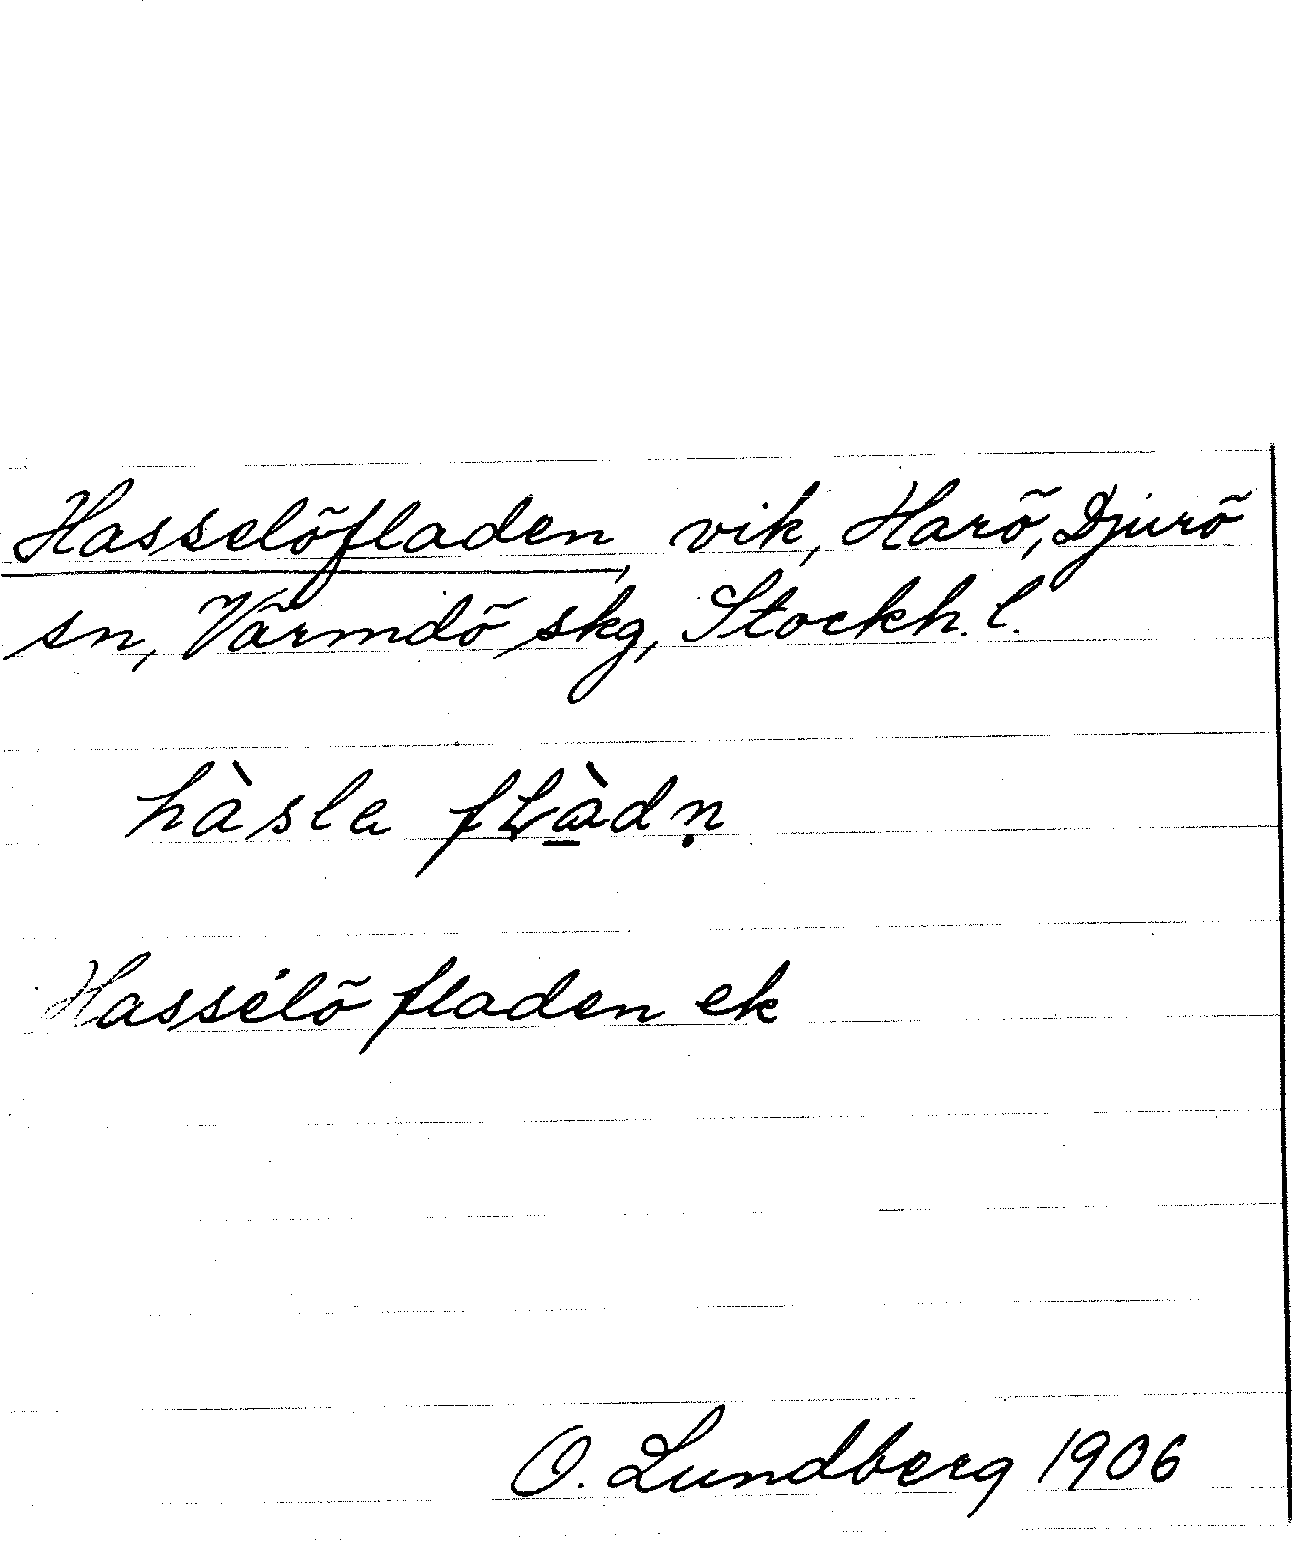 Hasselöfladen, vik, Harö, Djurö
sn, Värmdö skg, Stockh. l.
hàsla fLà̱dṇ
Hasselö fladen ek
O. Lundberg 1906